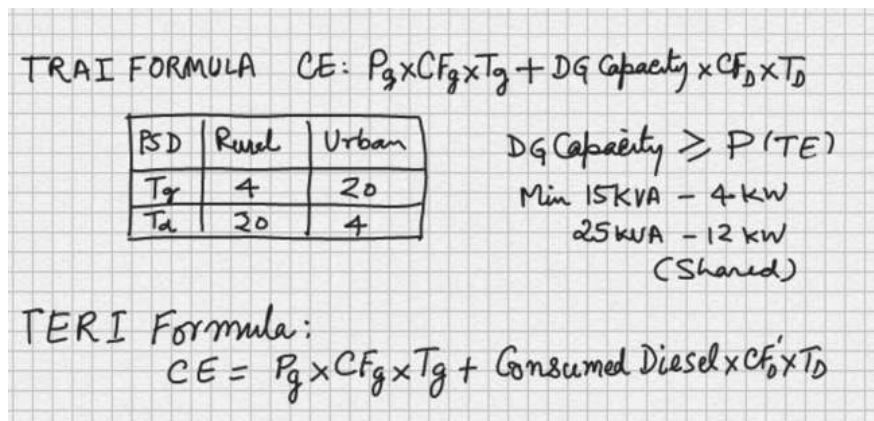 TRAI FORMULA CE: Pg×CFg×Tg + DG Capacity×CFD×TD
PSD Rural Urban
Tg 4 20
Td 20 4
DG Capacity ≥ P(TE)
Min 15KVA - 4KW
25KVA - 12KW
(Shared)
TERI Formula:
CE = Pg×CFg×Tg + Consumed Diesel×CFD'×TD